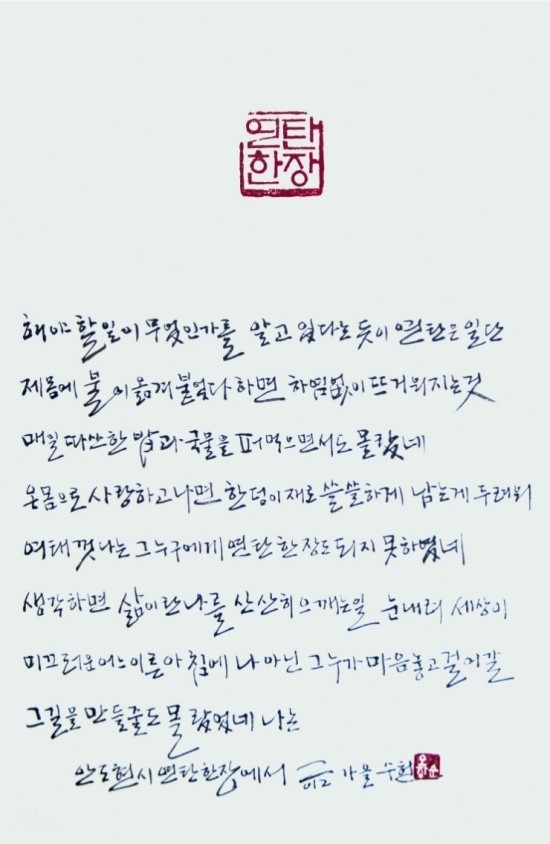 연탄
한장
해야 할 일이 무엇인가를 알고 있다는 듯이 연탄은 일단
제몸에 불이 옮겨 붙었다 하면 하염없이 뜨거워지는것
매일 따스한 밥과 국물을 퍼먹으면서도 몰랐네
온몸으로 사랑하고나면 한덩이재로 쓸쓸하게 남는게 두려워
여태껏 나는 그누구에게 연탄 한장도 되지 못하였네
생각하면 삶이란 나를 산산히 으깨는일 눈내려 세상이
미끄러운 어느 이른아침에 나 아닌 그 누가 마음놓고 걸어갈
그길을 만들줄도 몰랐었네 나는
안도현시 연탄한장에서 가을